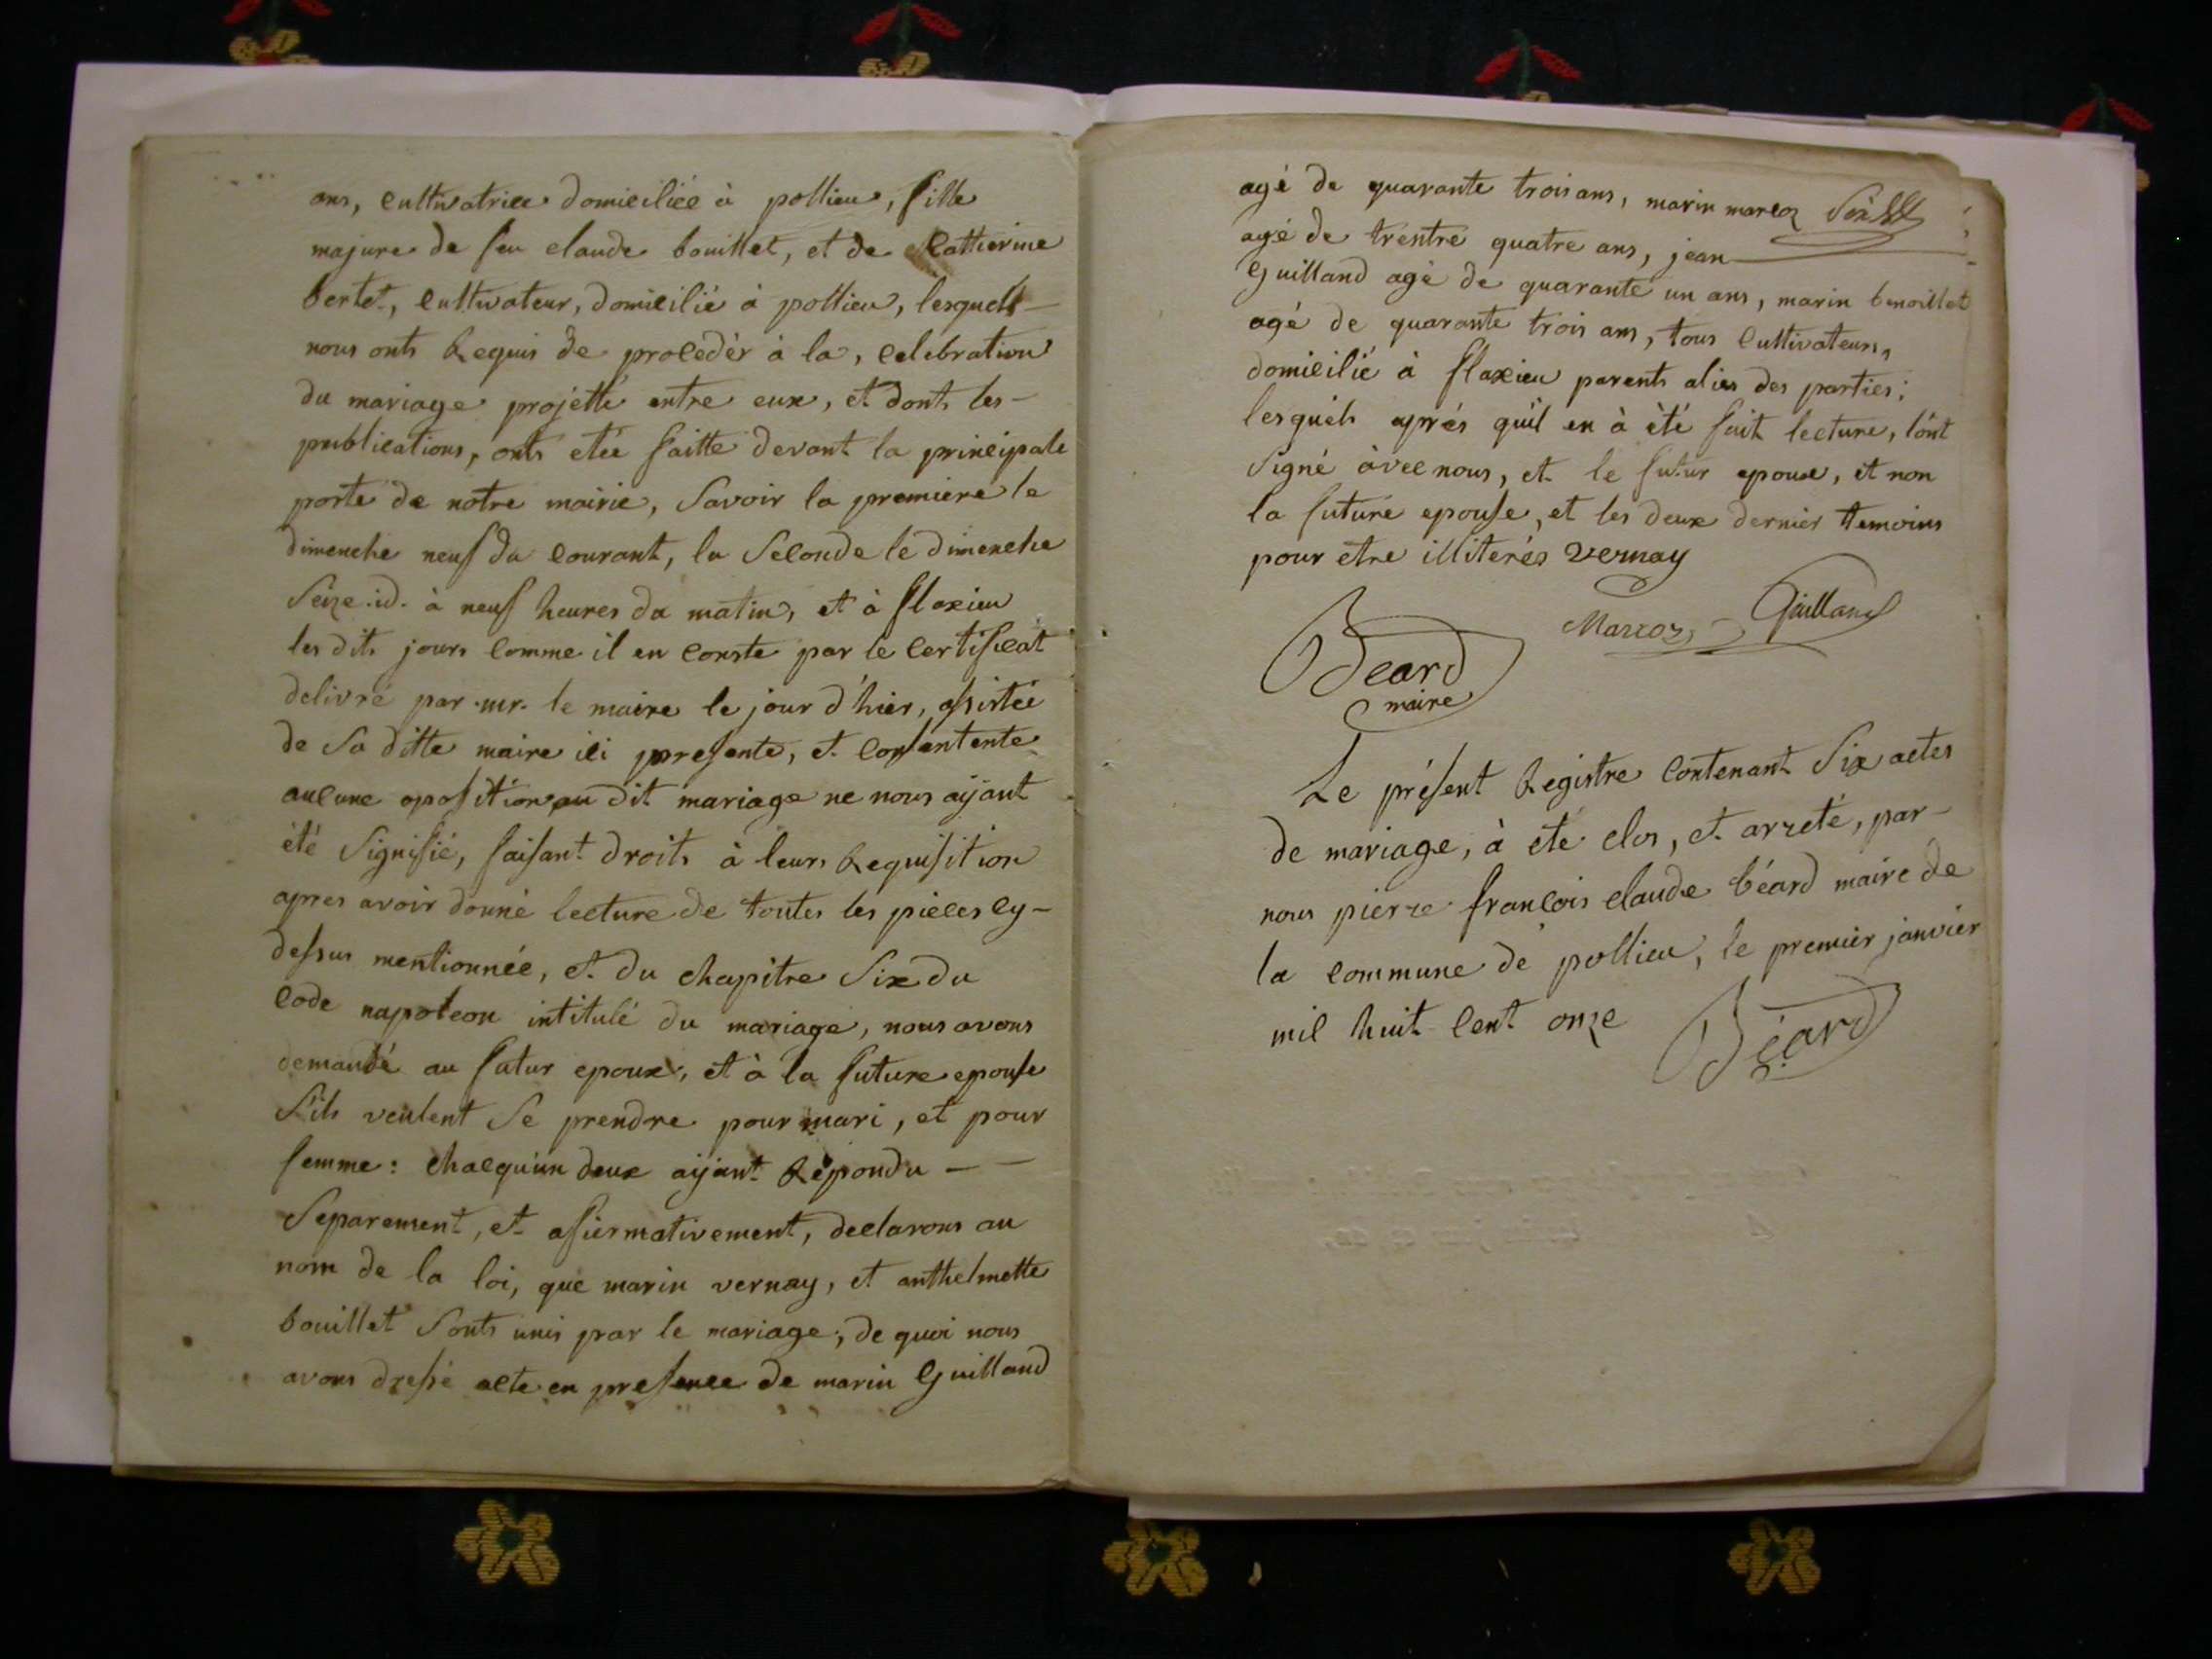 ans, cultivatrice domiciliée à pollieu, fille
majure de feu claude bouillet, et de Catterine
bertet, cultivateur, domicilié à pollieu, lesquels —
nous onts Requis de procedèr à la, celebration
du mariage projetté entre eux, et donts les —
publications, onts etée faitte devant la principale
porte de notre mairie, Savoir la premiere le
dimenche neuf du courant, la Seconde le dimenche
Seize .id. à neuf heures du matin, et à flaxieu
les dits jours comme il en conste par le certificat
delivré par .mr. le maire le jour d'hier, assistée
de Sa ditte maire ici presente, et consentente
aucune oposition au dit mariage ne nous aÿant
été Signifié, faisant droits à leurs Requisition
apres avoir donné lecture de toutes les pièces cy —
dessus mentionnée, et du chapitre Six du
code napoleon intitulé du mariage, nous avons
demandé au futur epoux, et à la future epouse
S'ils veulent Se prendre pour mari, et pour
femme : chacqu'un deux aÿant Répondu — —
Separement, et afiermativement, declarons au
nom de la loi, que marin vernay, et anthelmette
bouillet Sonts unis par le mariage ; de quoi nous
avons dressé acte en presence de marin Guilland
agé de quarante trois ans, marin marcoz
agé de trentre quatre ans, jean —
Guilland agé de quarante un ans, marin benoillet
agé de quarante trois ans, tous cultivateurs,
domicilié à flaxieu parents aliés des parties ;
lesquels aprés qu'il en à èté fait lecture, l'ont
Signé àvec nous, et le futur epoux, et non
la future epouse, et les deux dernier temoins
pour etre illiterés vernay
Marcoz Guilland
Beard
maire
Le présent Registre contenant Six actes
de mariage, à eté clos, et arreté, par —
nous pierre françois claude béard maire de
la commune de pollieu, le premièr janvièr
mil huit cent onze
Béard